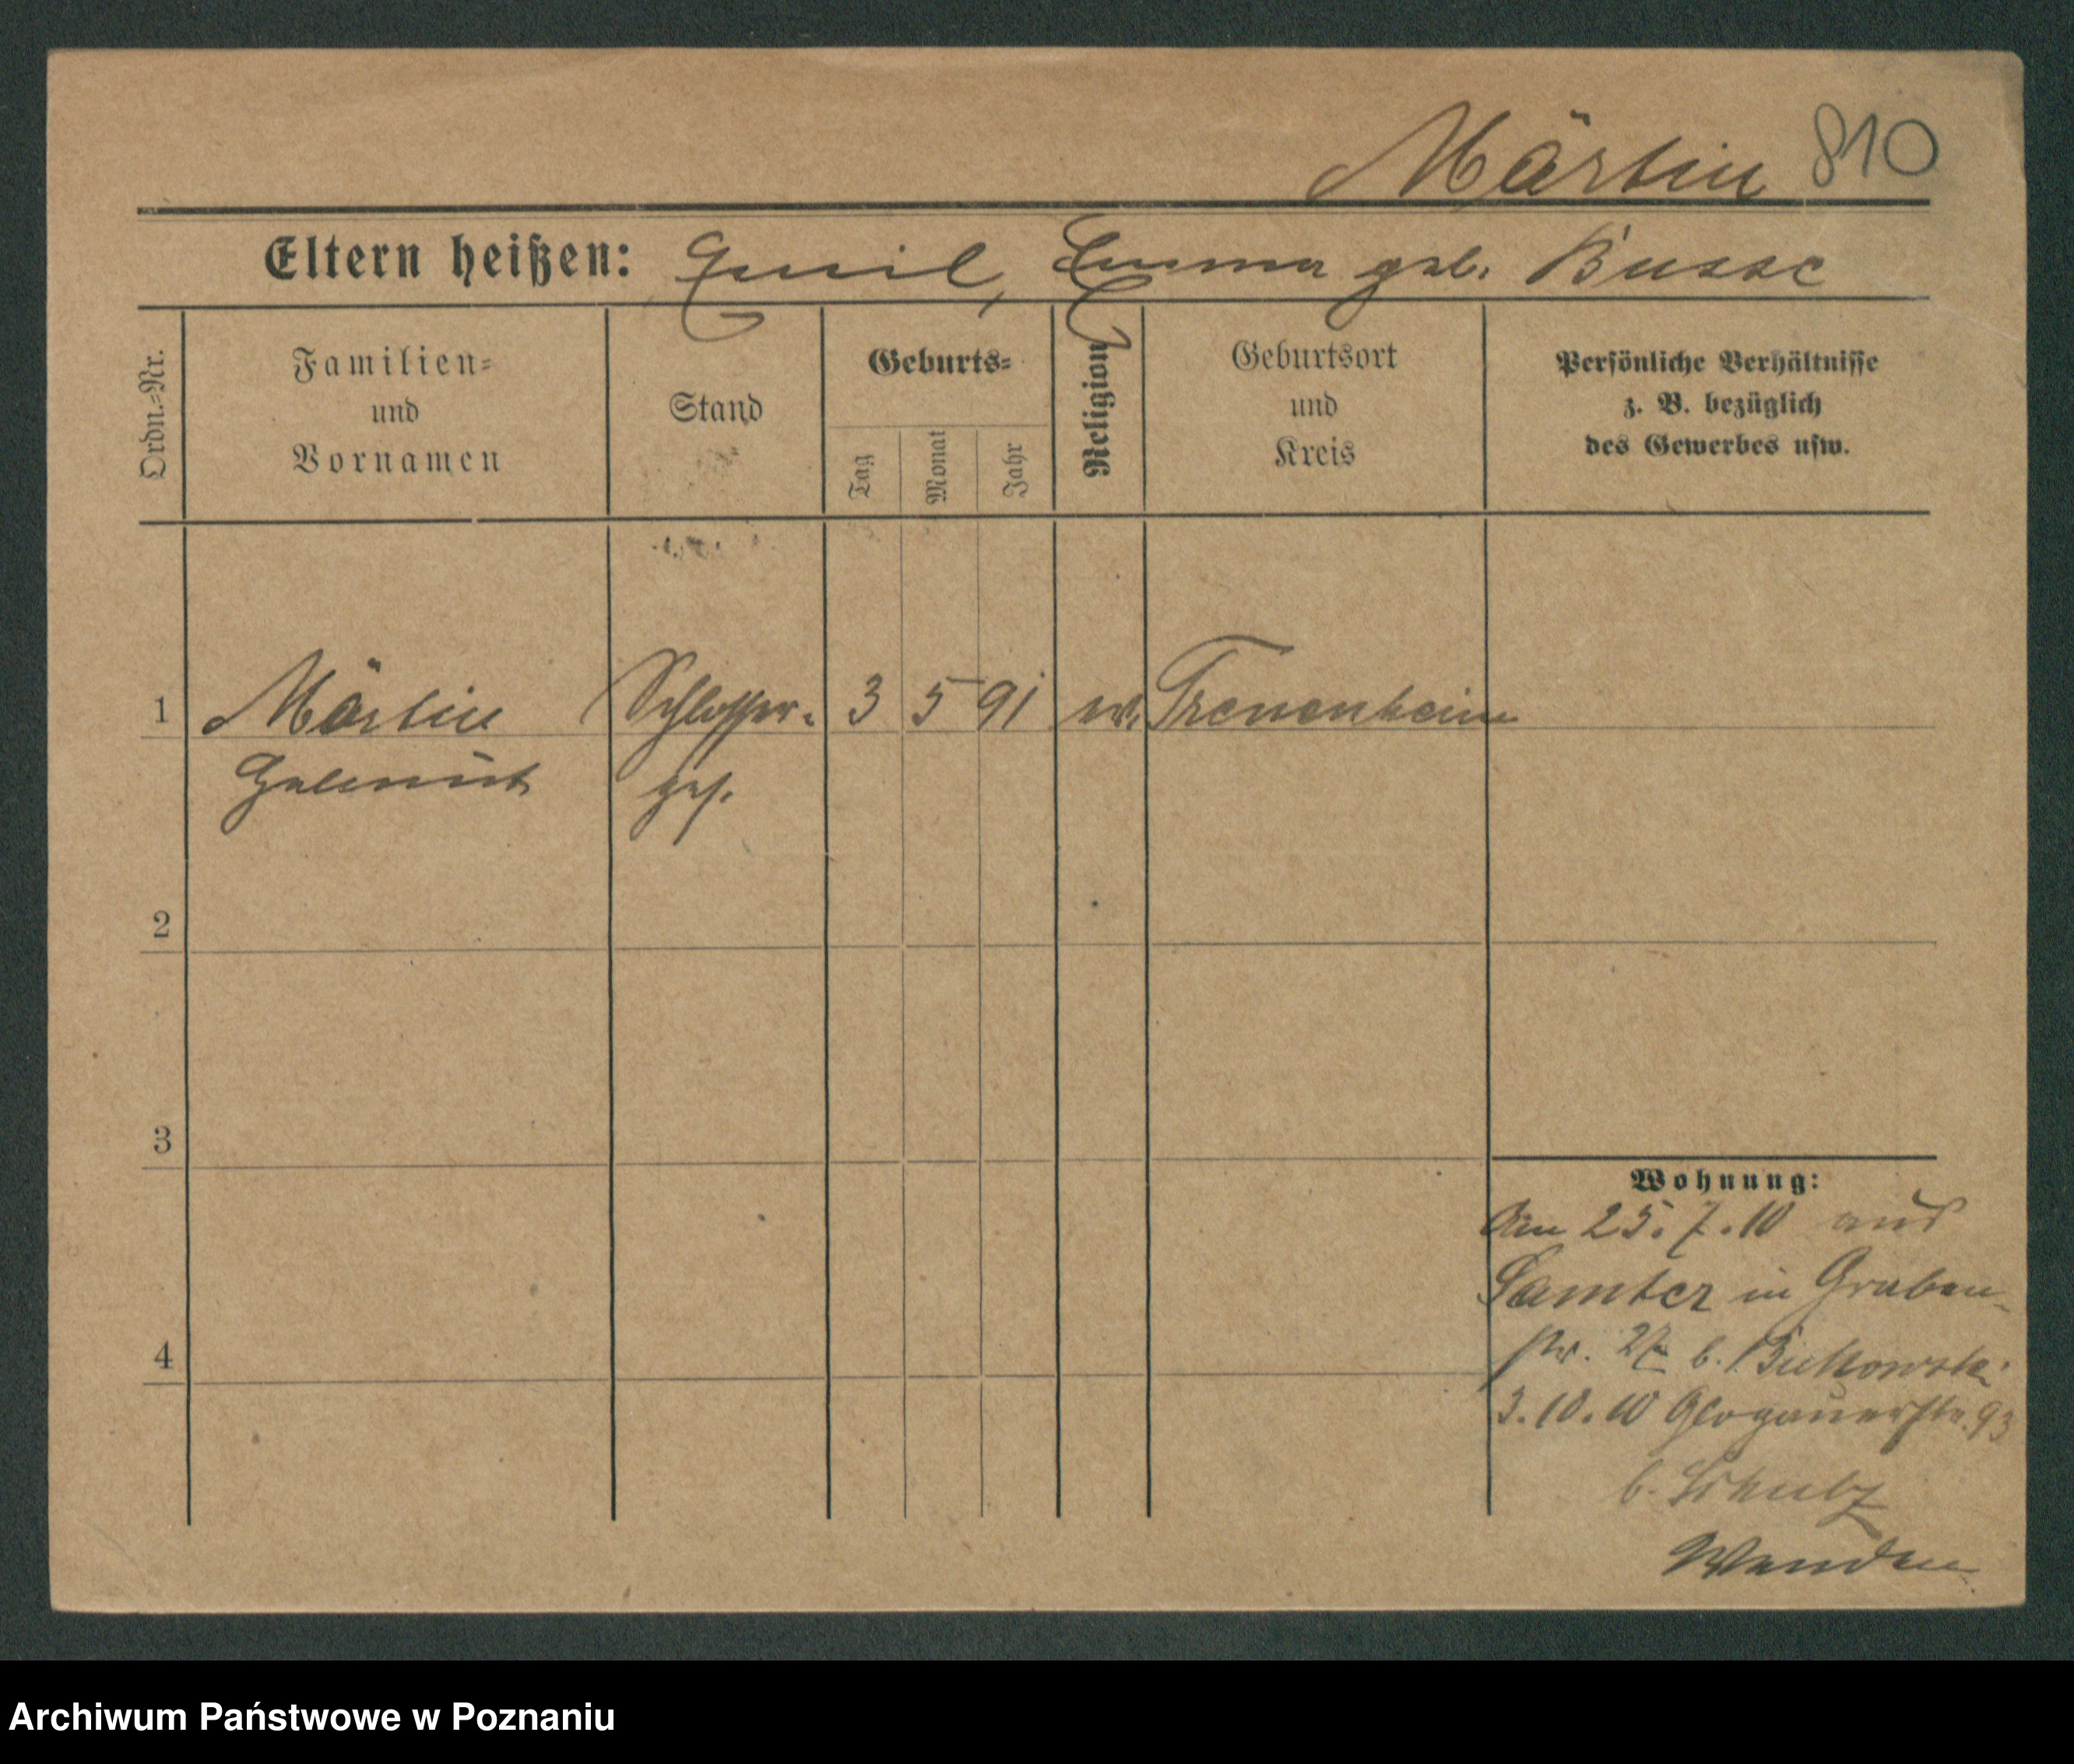 Märtin 810
Eltern heißen: Emil, Emma geb. Busse
Ordn.-Nr.
Familien-
und
Vornamen
Stand
Geburts-
Tag
Monat
Jahr
Religion
Geburtsort
und
Kreis
Persönliche Verhältnisse
z. B. bezüglich
des Gewerbes usw.
1 Märtin Schlosser- 3 5 91 ev. Treuenheim
Helmut ges.
2
3
4
Wohnung:
Am 25.7.10 aus
Samter in Graben-
str. 27 b. Butkowski
3.10.10 Glogauerstr. 93
b. Schulz
Wenden
Archiwum Państwowe w Poznaniu